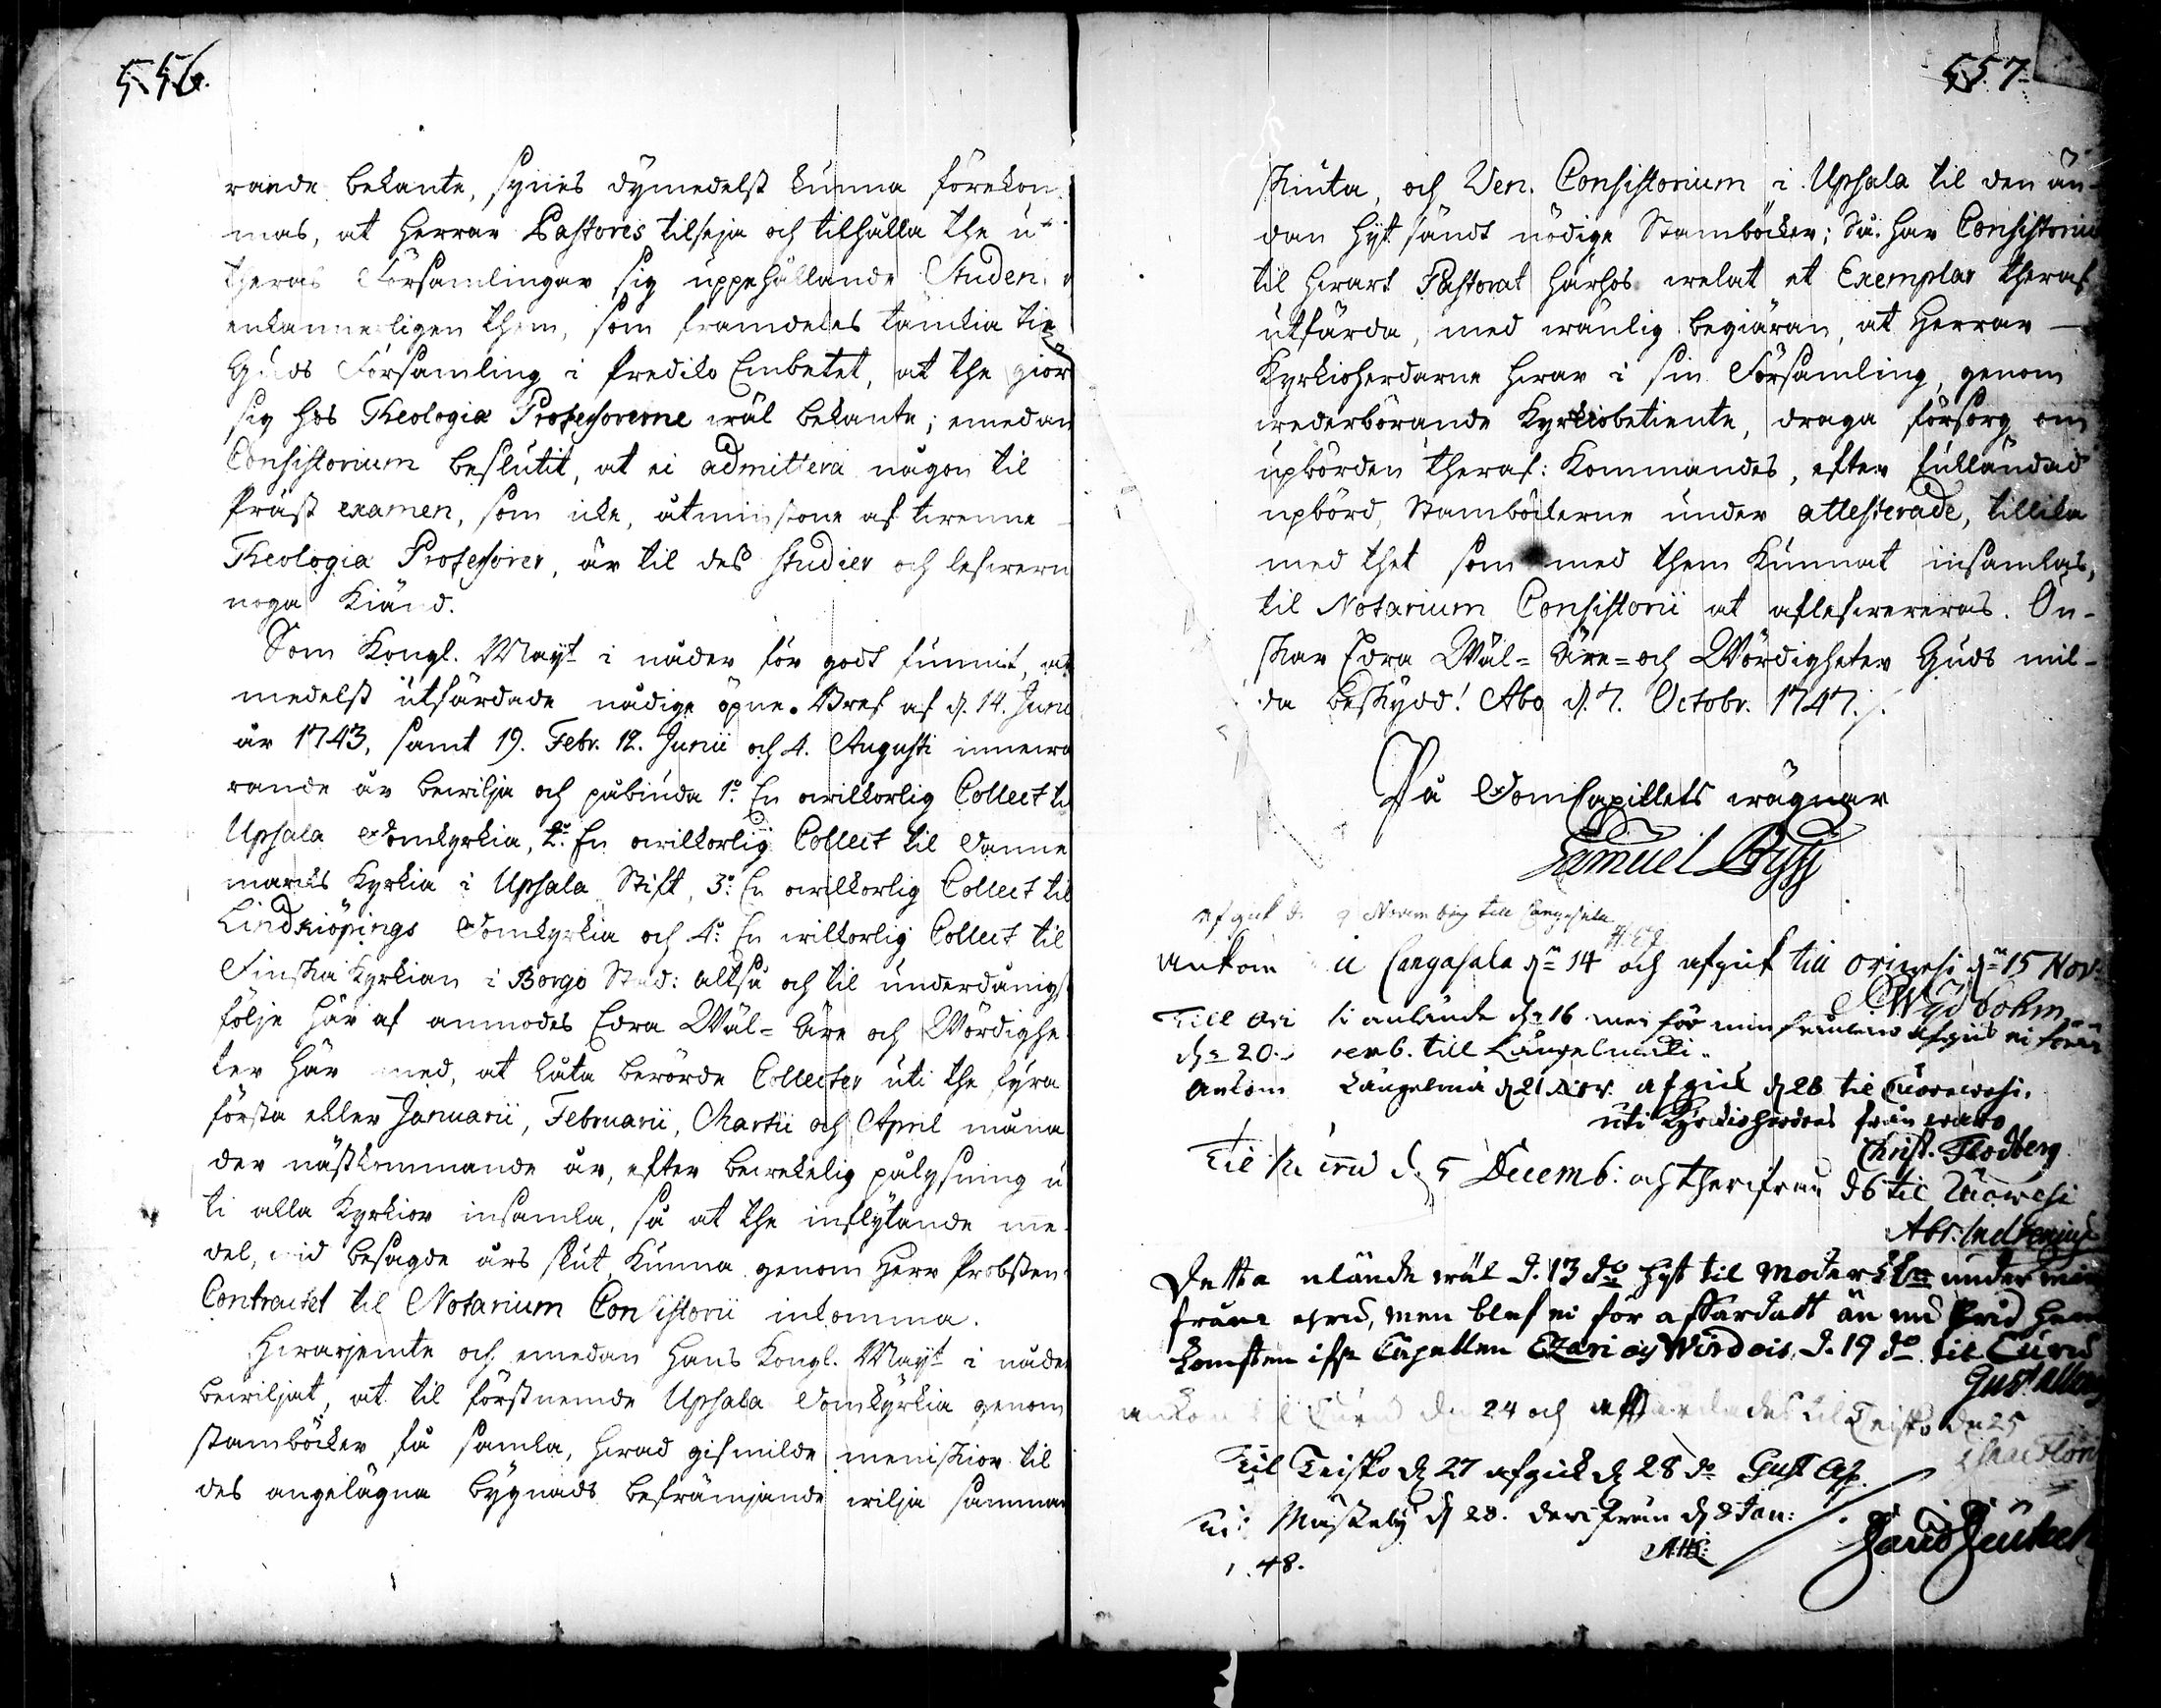 556.
rande bekante, synes dymedelst kunna förekom¬
mas, at Herrar Pastores tilseja och tilhålla the u¬
theras Församlingar sig uppehållande Studen¬
enkannerligen them, som framdeles tänckia
Guds Församling i Prediko Embetet, at the giör
sig hos Theologiæ Professorerne wäl bekante; emedan
Consistorium beslutit, at ei admittera någon til
Präst examen, som icke, åtminstone af twenne
Theologiæ Professorer, är til des studier och lefwern
noga Kiänd.
Som Kongl. Mayt i nåder för godt funnit, at
medelst utfärdade nådige öpne Bref af d. 14. Junii
år 1743, samt 19. Febr. 12. Junii och 4. Augusti innewa
rande år bewilja och påbiuda 1o. En owilkorlig Collect til
Upsala Domkyrkia, 2o. En owilkorlig Collect til Danne
marcks Kyrkia i Upsala Stift, 3o. En owilkorlig Collect til
Lindkiöpings Domkyrkia och 4o. En wilkorlig Collect til
Finska Kyrkian i Borgo Stad: altså och til underdånigst
följe här af anmodes Edra Wäl- Äre och Wördighe
ter här med, at låta berörde Collecter uti the fyra
första eller Januarii, Februarii, Martii och April måna
der nästkommande år, efter bewekelig pålysning u
ti alla Kyrkior insamla, så at the inflytande me
del, wid besagde års slut, Kunna genom Herr Probsten
Contractet til Notarium Consistorii inkomma.
Hwarjemte och emedan Hans Kongl. Mayt i nåder
bewiljat, at til förstnemde Upsala Domkyrkia genom
stamböcker få samla, hwad gifmilde meniskior til
des angelägna bygnads befrämjande wilja samman
557
skiuta, och Ven. Consistorium i Upsala til den än¬
dan hyt sändt nödige Stamböcker; Så har Consistorium
til hwart Pastorat härhos welat et Exemplar theraf
utfärda, med wänlig begiäran, at Herrar
Kyrkioherdarne hwar i sin Församling, genom
wederbörande Kyrkiobetiente, draga försorg om
upbörden theraf: Kommandes, efter fulländad
upbörd, Stamböckerne under attesterade, tillika
med thet som med them Kunnat insamlas,
til Notarium Consistorii at aflefwereras. Ön¬
skar Edra Wäl- Äre- och Wördigheter Guds mil¬
da beskydd! Åbo d. 7. Octobr. 1747.
På DomCapitlets wägnar
Samuel Pryss
afgick d. 9 Novembris till Cangasala
Ankom Cangasala dn 14 och afgick till Oriwesi dn 15 Nov.
till Ori si anlände dn 16 men för min frånwaro afgick ei förr
dn 20. till Längelmäki
Ankom Längelmä d 21 Nov. afgick d 28 til Kuorewesi.
uti Kyrkioherdens frånwaro
Christ. Flodberg
Til d. 5 Decemb: och therifrån d 6 til Ruowesi
Abr.
Detta anlände wäl d. 13 do hyt til Moder under min
från waro, men blef ei för affärdatt än wid
komsten ifr Capellen Ezari och Wirdois, d. 19 do til Curu
Gust
ankom til Curu den 24 och affärdades til Teisko dn 25
Til Teisko d 27 afgick d 28 do Gust
Til Mäskylä d 28. derifrån d 8 Jan:
48.
David